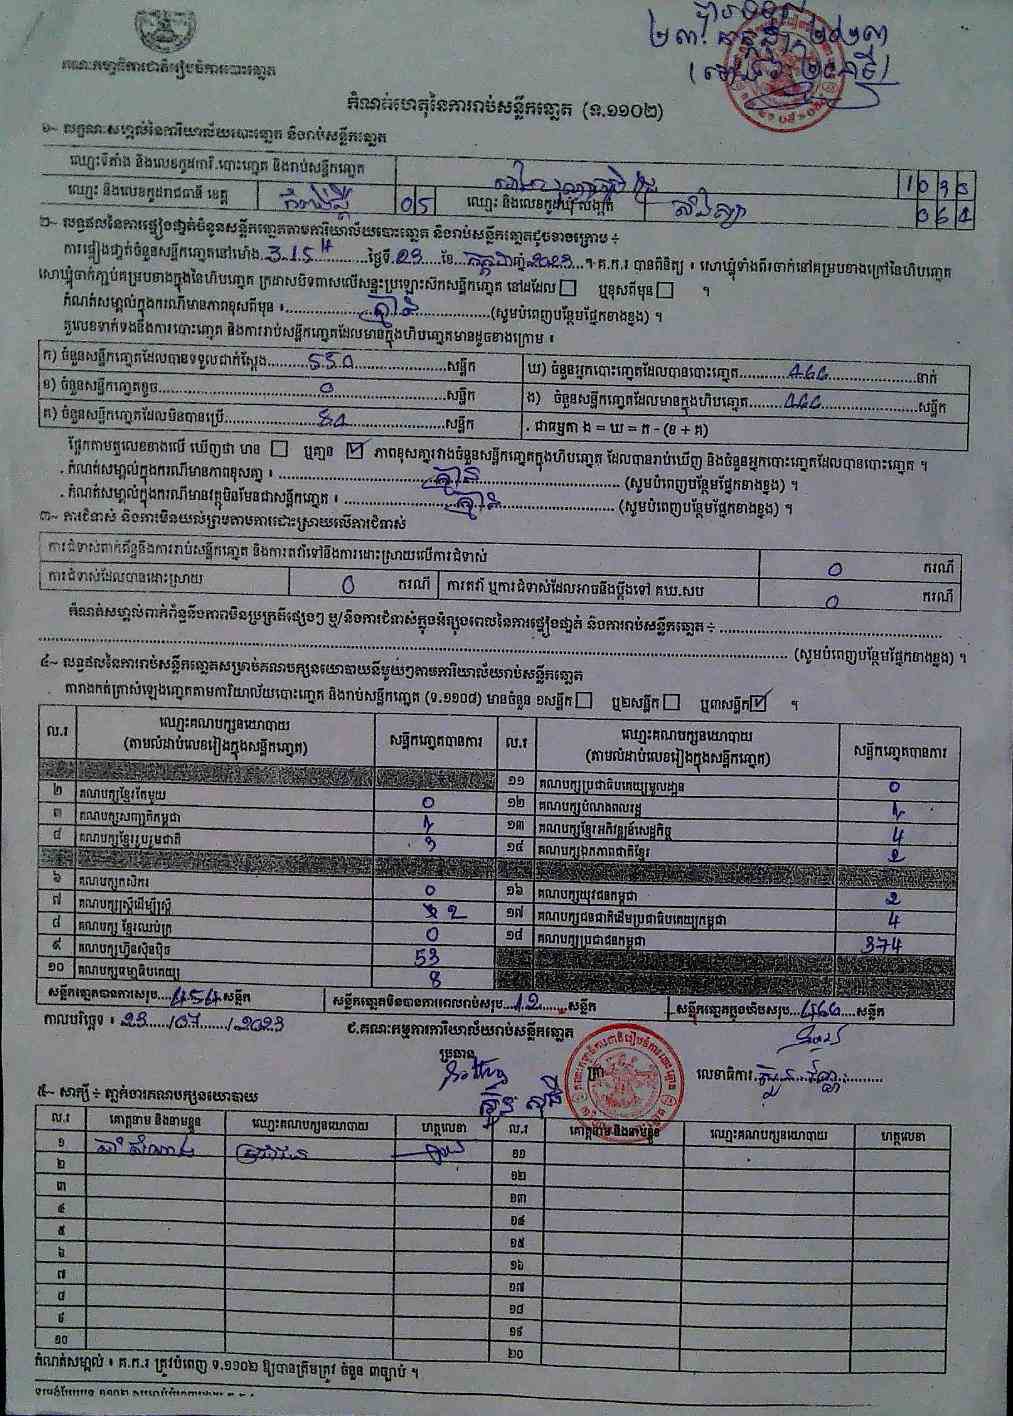 គណៈកម្មាធិការជាតិរៀបចំការបោះឆ្នោត
២៣ កក្កដា ២០២៣
កំណត់ហេតុនៃការរាប់សន្លឹកឆ្នោត (ទ.១១០២)
១~ លក្ខណៈសម្គាល់នៃការិយាល័យបោះឆ្នោត និងរាប់សន្លឹកឆ្នោត
ឈ្មោះទីតាំង និងលេខកូដការិ.បោះឆ្នោត និងរាប់សន្លឹកឆ្នោត
ឈ្មោះ និងលេខកូដរាជធានី ខេត្ត កំពង់ស្ពឺ 05 ឈ្មោះ និងលេខកូដឃុំ សង្កាត់
២~ លទ្ធផលនៃការផ្ទៀងផ្ទាត់ចំនួនសន្លឹកឆ្នោតតាមការិយាល័យបោះឆ្នោត និងរាប់សន្លឹកឆ្នោតដូចខាងក្រោម ៖
ការផ្ទៀងផ្ទាត់ចំនួនសន្លឹកឆ្នោតនៅម៉ោង 3:15 ថ្ងៃទី 23 ខែ កក្កដា ឆ្នាំ 2023 ។ គ.ក.រ បានពិនិត្យ ៖ សោឃ្មុំទាំងពីរចាក់នៅគម្របខាងក្រៅនៃហិបឆ្នោត
សោឃ្មុំចាក់ភ្ជាប់គម្របខាងក្នុងនៃហិបឆ្នោត ក្រដាសបិទពាសលើសន្ទះប្រឡោះស៊កសន្លឹកឆ្នោត នៅដដែល ឬខុសពីមុន ។
កំណត់សម្គាល់ក្នុងករណីមានភាពខុសពីមុន ៖ គ្មាន (សូមបំពេញបន្ថែមផ្នែកខាងខ្នង) ។
តួលេខទាក់ទងនឹងការបោះឆ្នោត និងការរាប់សន្លឹកឆ្នោតដែលមានក្នុងហិបឆ្នោតមានដូចខាងក្រោម ៖
ក) ចំនួនសន្លឹកឆ្នោតដែលបានទទួលជាក់ស្តែង 550 សន្លឹក ឃ) ចំនួនអ្នកបោះឆ្នោតដែលបានបោះឆ្នោត 466 នាក់
ខ) ចំនួនសន្លឹកឆ្នោតខូច 0 សន្លឹក ង) ចំនួនសន្លឹកឆ្នោតដែលមានក្នុងហិបឆ្នោត 466 សន្លឹក
គ) ចំនួនសន្លឹកឆ្នោតដែលមិនបានប្រើ 84 សន្លឹក . ជាធម្មតា ង = ឃ = ក - (ខ + គ)
ផ្អែកតាមតួលេខខាងលើ ឃើញថា មាន ឬគ្មាន ✓ ភាពខុសគ្នារវាងចំនួនសន្លឹកឆ្នោតក្នុងហិបឆ្នោត ដែលបានរាប់ឃើញ និងចំនួនអ្នកបោះឆ្នោតដែលបានបោះឆ្នោត ។
. កំណត់សម្គាល់ក្នុងករណីមានភាពខុសគ្នា ៖ គ្មាន (សូមបំពេញបន្ថែមផ្នែកខាងខ្នង) ។
. កំណត់សម្គាល់ក្នុងករណីមានវត្ថុមិនមែនជាសន្លឹកឆ្នោត ៖ គ្មាន (សូមបំពេញបន្ថែមផ្នែកខាងខ្នង) ។
៣~ ការជំទាស់ និងការមិនយល់ព្រមតាមការដោះស្រាយលើការជំទាស់
ការជំទាស់ពាក់ព័ន្ធនឹងការរាប់សន្លឹកឆ្នោត និងការតវ៉ាទៅនឹងការដោះស្រាយលើការជំទាស់ 0 ករណី
ការជំទាស់ដែលបានដោះស្រាយ 0 ករណី ការតវ៉ា ឬការជំទាស់ដែលអាចនឹងប្តឹងទៅ គឃ.សប 0 ករណី
កំណត់សម្គាល់ពាក់ព័ន្ធនឹងភាពមិនប្រក្រតីផ្សេងៗ ឬ/និងការជំទាស់ក្នុងអំឡុងពេលនៃការផ្ទៀងផ្ទាត់ និងការរាប់សន្លឹកឆ្នោត ៖
(សូមបំពេញបន្ថែមផ្នែកខាងខ្នង) ។
៤~ លទ្ធផលនៃការរាប់សន្លឹកឆ្នោតសម្រាប់គណបក្សនយោបាយនីមួយៗតាមការិយាល័យរាប់សន្លឹកឆ្នោត
តារាងកត់ត្រាសំឡេងឆ្នោតតាមការិយាល័យបោះឆ្នោត និងរាប់សន្លឹកឆ្នោត (ទ.១១០៨) មានចំនួន ១សន្លឹក ឬ២សន្លឹក ឬ៣សន្លឹក ✓ ។
ល.រ ឈ្មោះគណបក្សនយោបាយ (តាមលំដាប់លេខរៀងក្នុងសន្លឹកឆ្នោត) សន្លឹកឆ្នោតបានការ ល.រ ឈ្មោះគណបក្សនយោបាយ (តាមលំដាប់លេខរៀងក្នុងសន្លឹកឆ្នោត) សន្លឹកឆ្នោតបានការ
១១ គណបក្សប្រជាធិបតេយ្យមូលដ្ឋាន 0
២ គណបក្សខ្មែរតែមួយ 0 ១២ គណបក្សបំណងពលរដ្ឋ 1
៣ គណបក្សសញ្ជាតិកម្ពុជា 1 ១៣ គណបក្សខ្មែរអភិវឌ្ឍន៍សេដ្ឋកិច្ច 4
៤ គណបក្សខ្មែររួបរួមជាតិ 3 ១៤ គណបក្សឯកភាពជាតិខ្មែរ 2
៦ គណបក្សកសិករ 0 ១៦ គណបក្សយុវជនកម្ពុជា 2
៧ គណបក្សស្ត្រីដើម្បីស្ត្រី 2 ១៧ គណបក្សជនជាតិដើមប្រជាធិបតេយ្យកម្ពុជា 4
៨ គណបក្ស ខ្មែរឈប់ក្រ 0 ១៨ គណបក្សប្រជាជនកម្ពុជា 374
៩ គណបក្សហ្វ៊ុនស៊ិនប៉ិច 53
១០ គណបក្សធម្មាធិបតេយ្យ 8
សន្លឹកឆ្នោតបានការសរុប 454 សន្លឹក សន្លឹកឆ្នោតមិនបានការពេលរាប់សរុប 12 សន្លឹក សន្លឹកឆ្នោតក្នុងហិបសរុប 466 សន្លឹក
កាលបរិច្ឆេទ ៖ 23/07/2023 ៩.គណៈកម្មការការិយាល័យរាប់សន្លឹកឆ្នោត
ប្រធាន ត្រា លេខាធិការ
៥~ សាក្សី ៖ ភ្នាក់ងារគណបក្សនយោបាយ
ល.រ គោត្តនាម និងនាមខ្លួន ឈ្មោះគណបក្សនយោបាយ ហត្ថលេខា ល.រ គោត្តនាម និងនាមខ្លួន ឈ្មោះគណបក្សនយោបាយ ហត្ថលេខា
១ ប្រជាជន ១១
២ ១២
៣ ១៣
៤ ១៤
៥ ១៥
៦ ១៦
៧ ១៧
៨ ១៨
៩ ១៩
១០ ២០
កំណត់សម្គាល់ ៖ គ.ក.រ ត្រូវបំពេញ ទ.១១០២ ឱ្យបានត្រឹមត្រូវ ចំនួន ៣ច្បាប់ ។